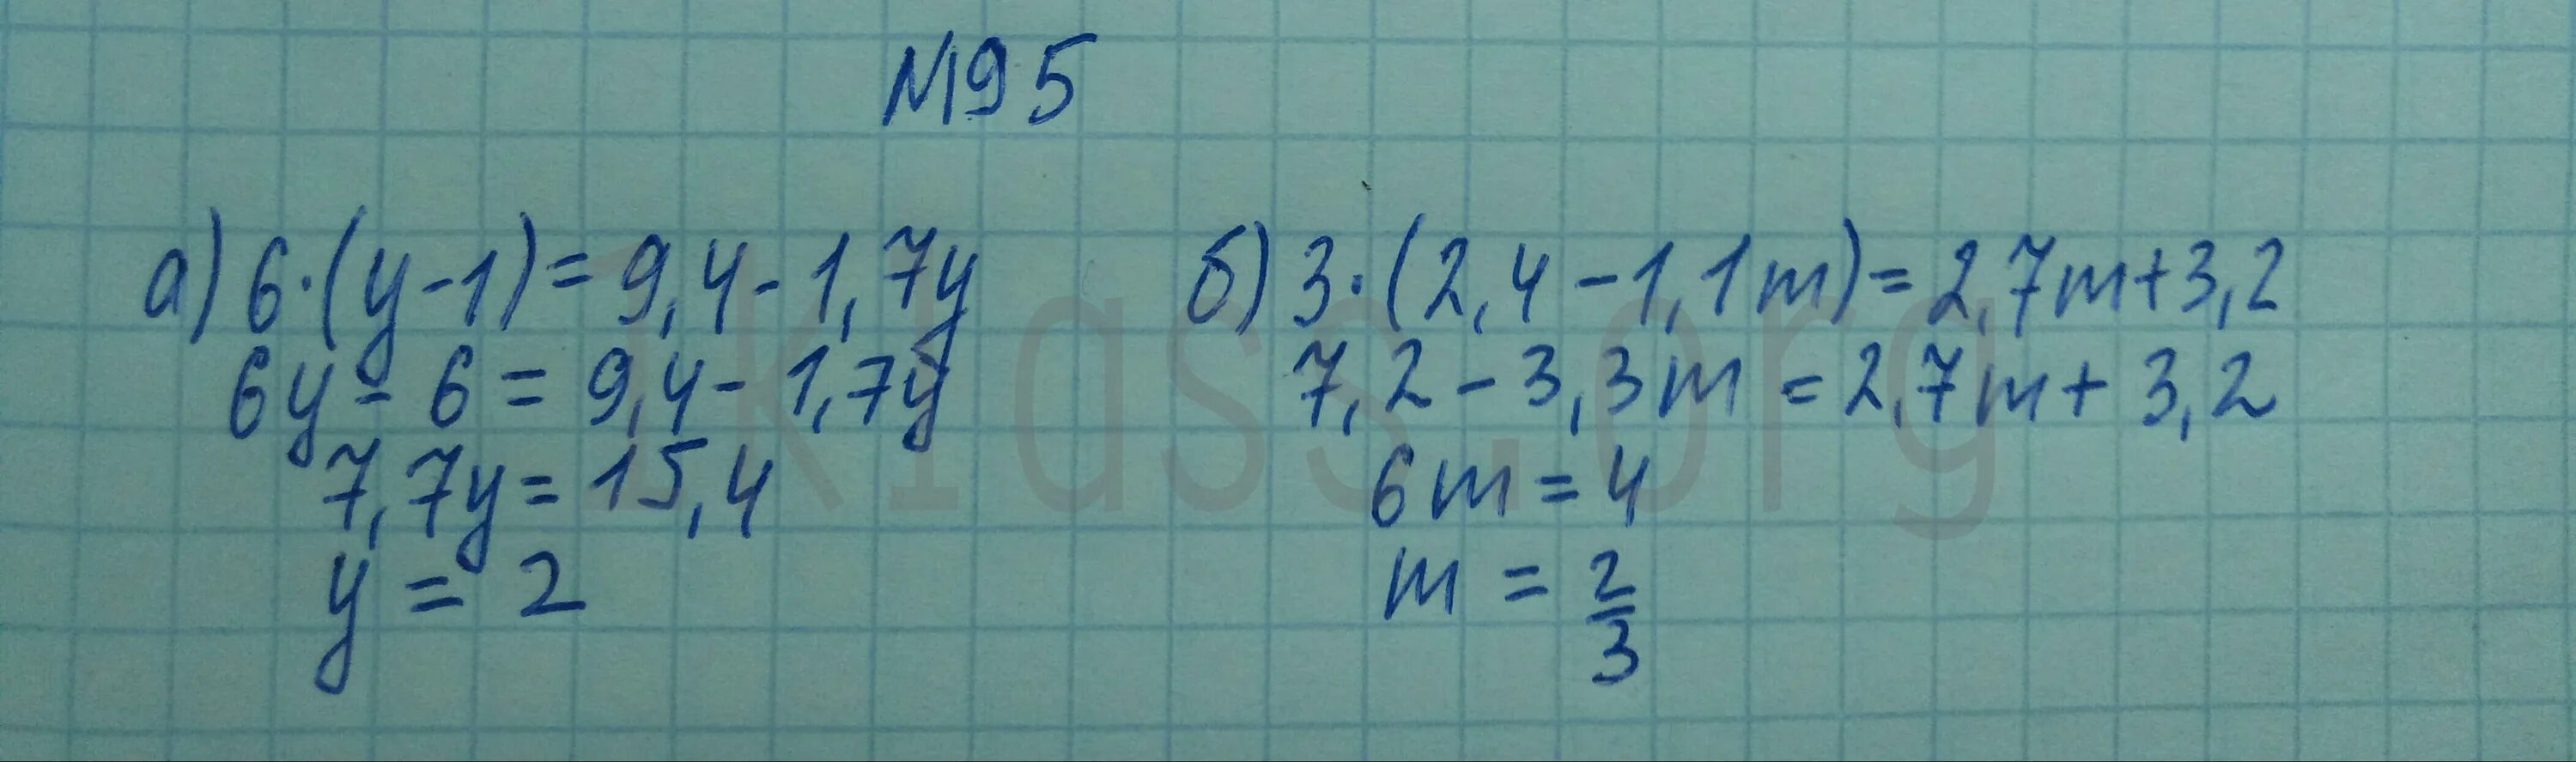 №95
а) 6·(y-1)=9,4-1,7y
6y-6=9,4-1,7y
7,7y=15,4
y=2
б) 3·(2,4-1,1m)=2,7m+3,2
7,2-3,3m=2,7m+3,2
6m=4
m=2/3
1klass.org